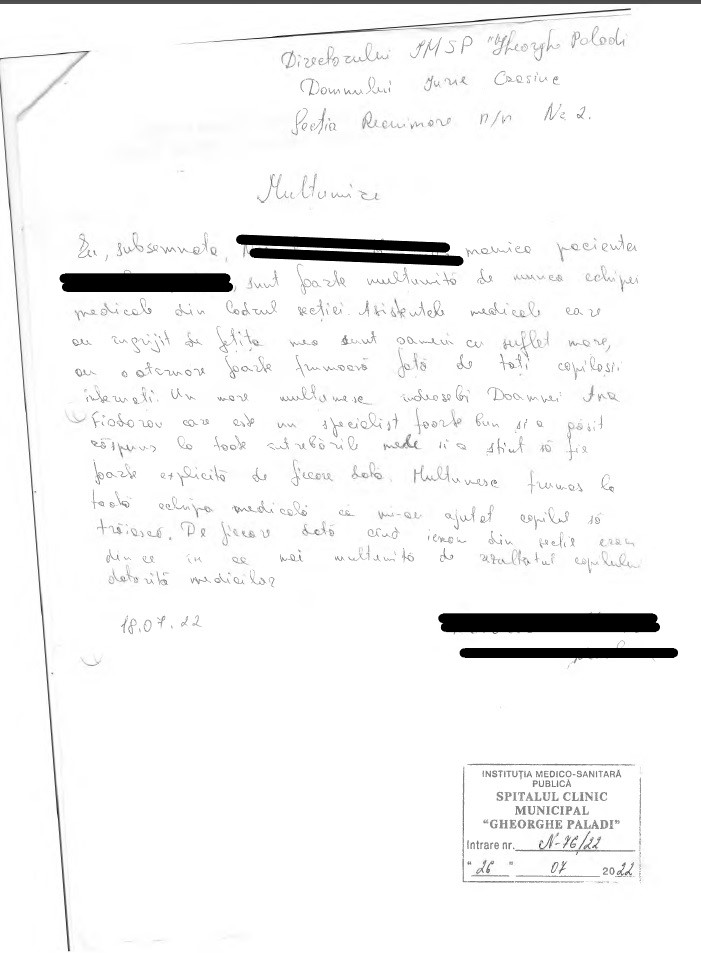 Directorului IMSP "Gheorghe Paladi
Domnului Iurie
Secția Reanimare n/n Nr 2.
Multumire
Eu, subsemnata, mamica pacientei
, sunt foarte multumită de munca echipei
medicale din Cadrul secției. Asistentele medicale care
au îngrijit de fetița mea sunt oameni cu suflet mare,
au o atârnare foarte frumoasă față de toți copilașii
internați. Un mare multumesc îndeosebi Doamnei Ana
Fiodorov care este un specialist foarte bun și a găsit
răspuns la toate întrebările mele și a știut să fie
foarte explicită de fiecare dată. Multumesc frumos la
toată echipa medicală ce mi-au ajutat copilul să
trăiască. De fiecare dată cînd ieseam din secție eram
din ce în ce mai multumită de rezultatul copilului
datorită medicilor
18.07.22
INSTITUȚIA MEDICO-SANITARĂ
PUBLICĂ
SPITALUL CLINIC
MUNICIPAL
"GHEORGHE PALADI"
Intrare nr. N-76/22
"26" 07 2022